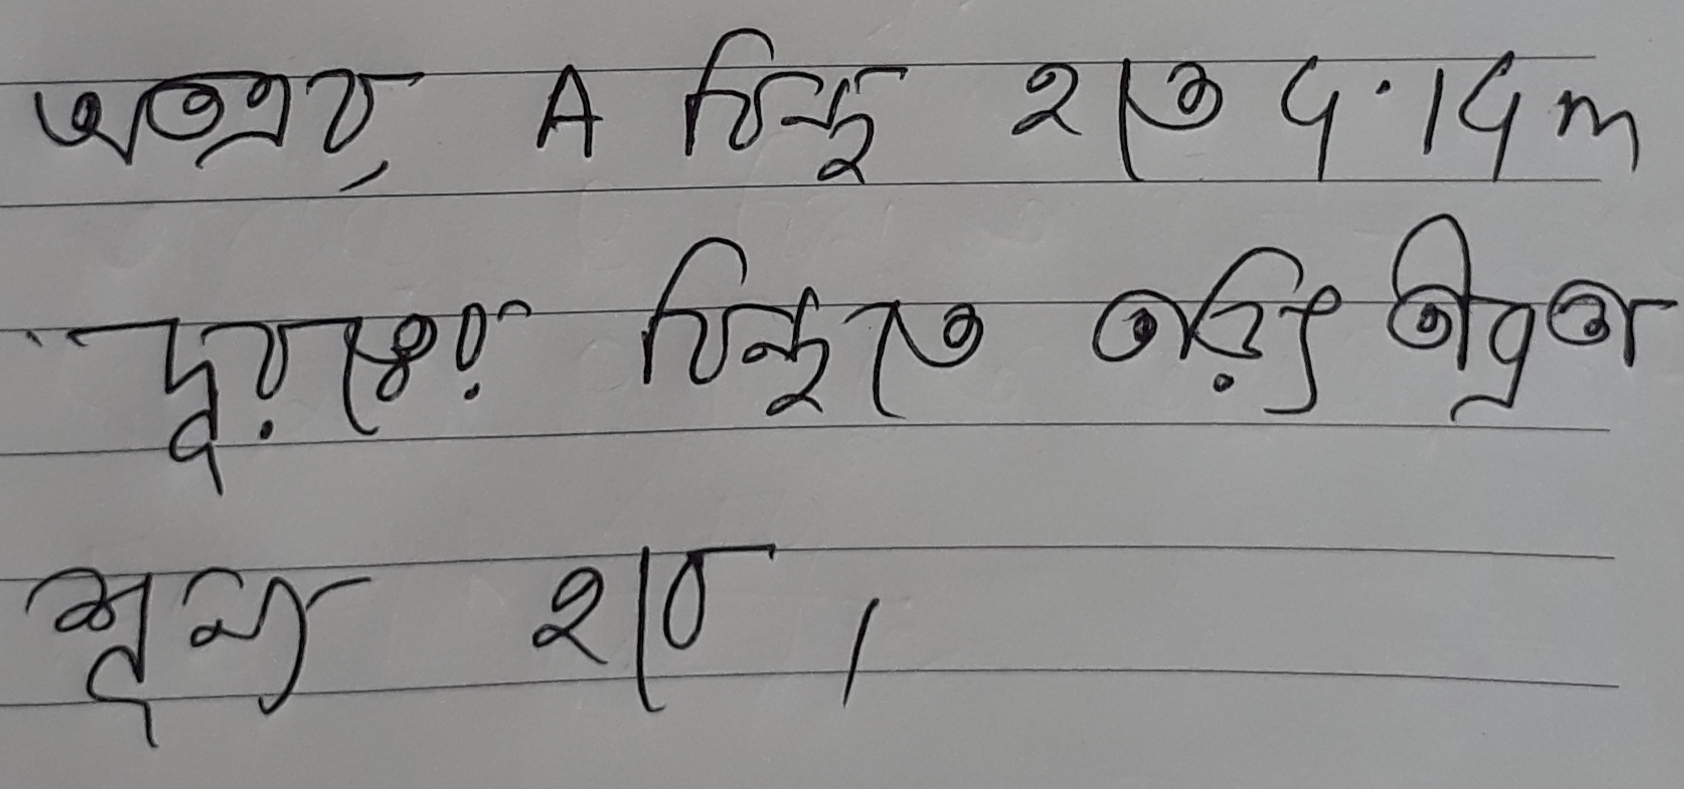 অতএব, A বিন্দু হতে 5.15 m
দূরের বিন্দুতে তড়িৎ তীব্রতা
শূন্য হবে।